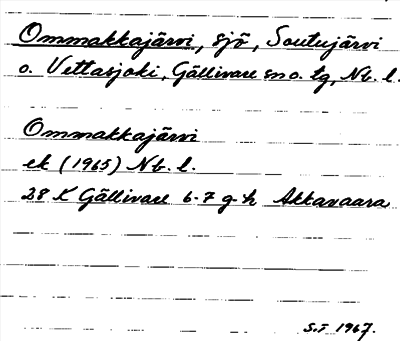 Ommakkajärvi, sjö, Soutujärvi
o. Vettasjoki, Gällivare sn o. tg, Nb. l.
Ommakkajärvi
ek (1965) Nb. l.
28 K Gällivare 6-7 g-h Akkavaara
S.I 1967.